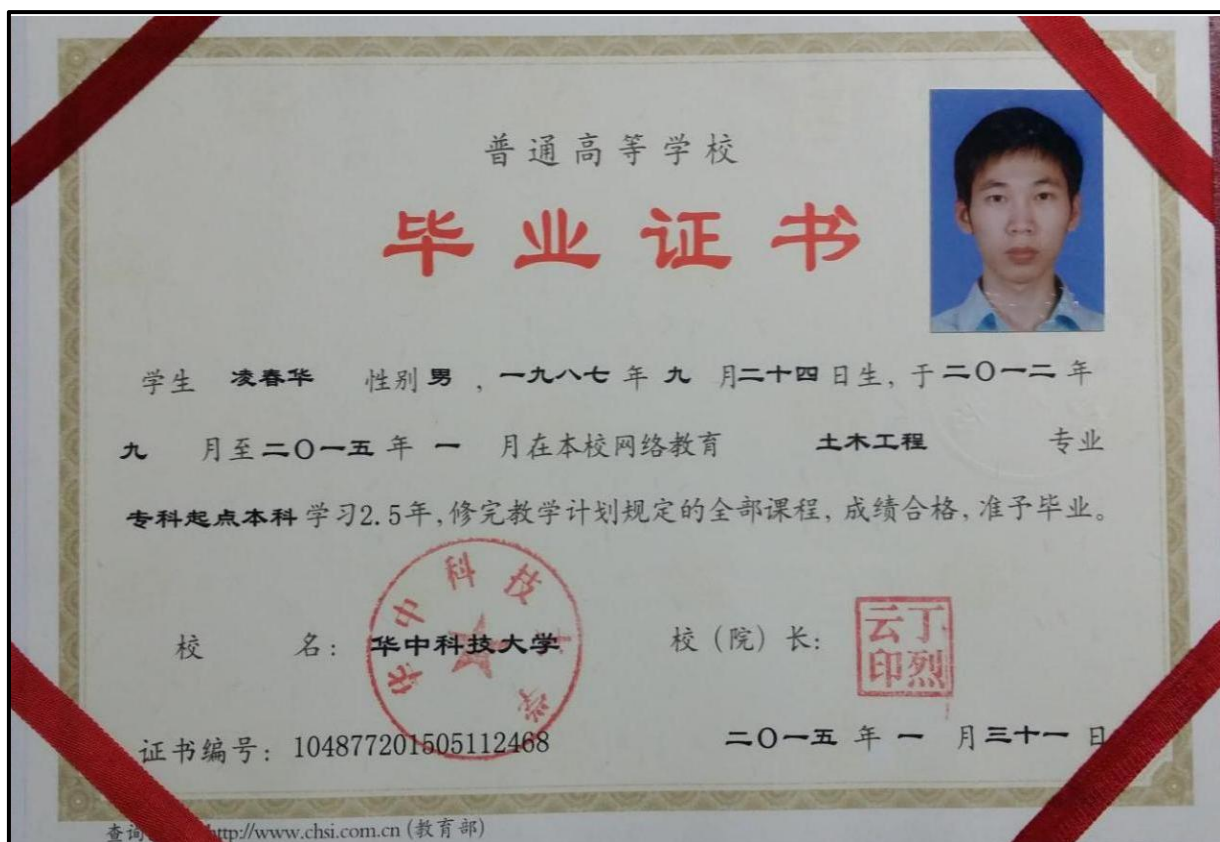 普通高等学校
毕业证书
学生 凌春华 性别 男 , 一九八七 年 九 月 二十四 日生, 于 二〇一二 年
九 月至 二〇一五 年 一 月在本校网络教育 土木工程 专业
专科起点本科 学习2.5年, 修完教学计划规定的全部课程, 成绩合格, 准予毕业。
华中科技大学
校 名: 华中科技大学 校 (院) 长: 丁烈云印
证书编号: 104877201505112468 二〇一五 年 一 月 三十一 日
查询 http://www.chsi.com.cn (教育部)